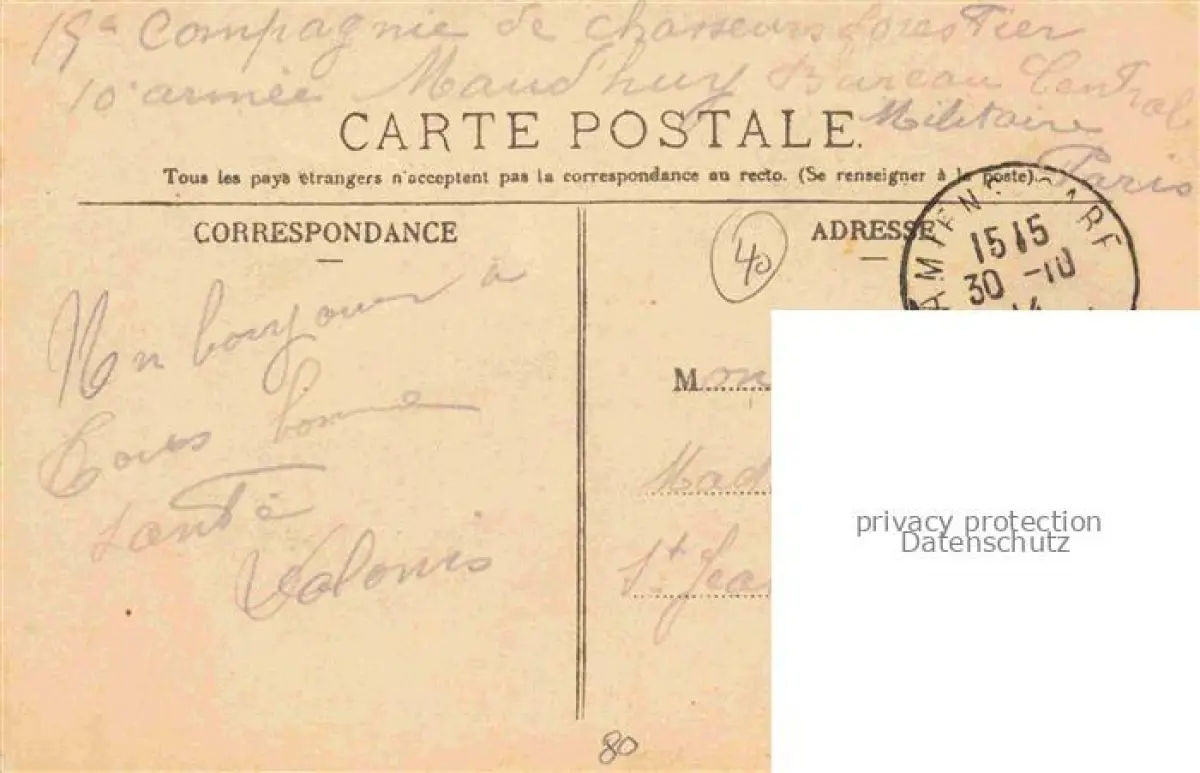 15e Compagnie de chasseurs forestier
10e armée Maud'huy Bureau Central
Militaire
Paris
CARTE POSTALE.
Tous les pays étrangers n'acceptent pas la correspondance au recto. (Se renseigner à la poste).
CORRESPONDANCE
ADRESSE
40
AMIENS GARE
15 15
30 -10
14
Mn bonjour à
tous bonne
santé
M
Mad
St Jea
80
privacy protection
Datenschutz